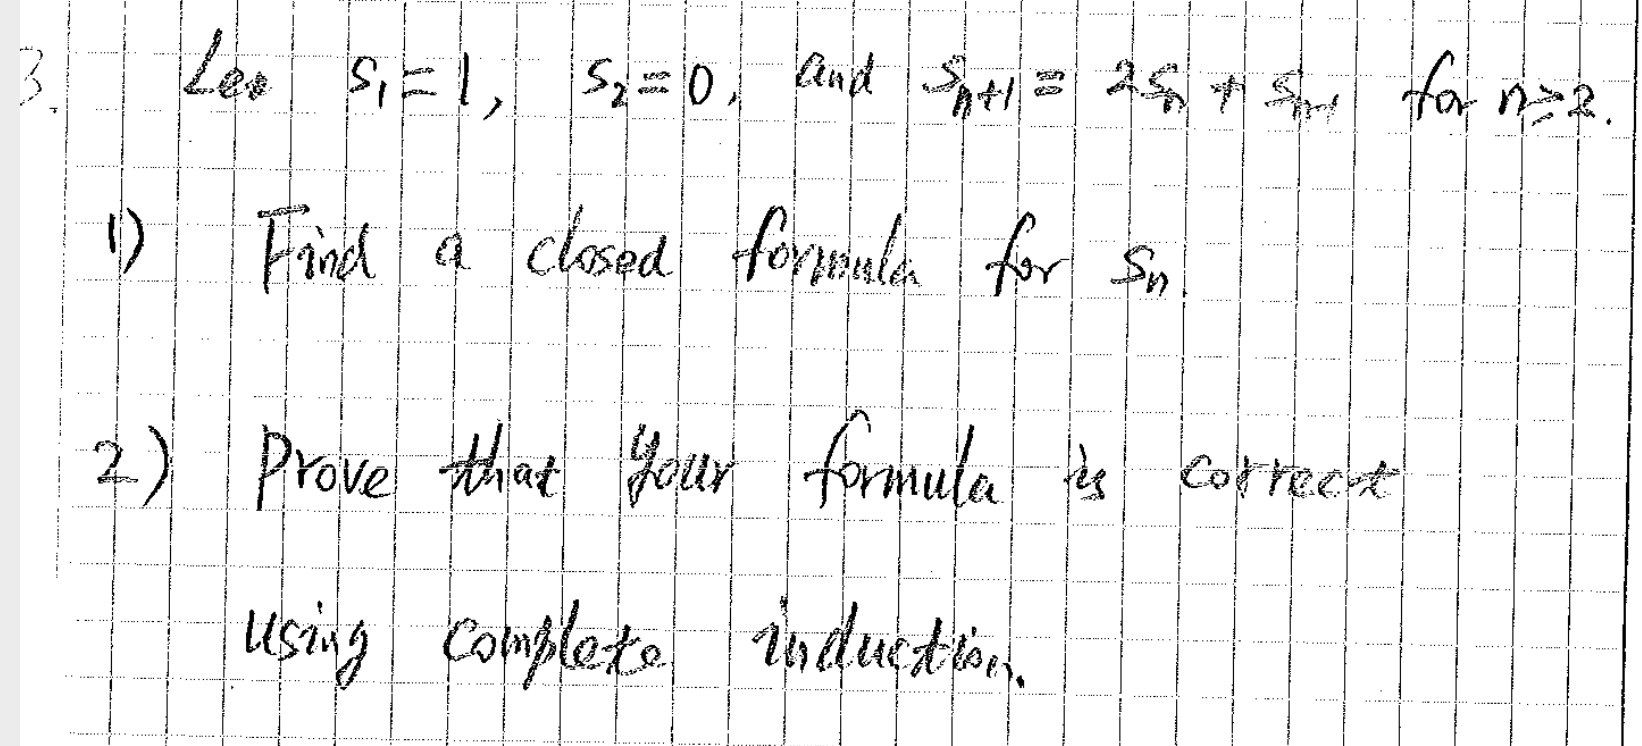 3. Let s₁=1, s₂=0, and sₙ₊₁ = 2sₙ + sₙ₋₁ for n≥2.
1) Find a closed formula for sₙ.
2) Prove that your formula is correct
using complete induction.